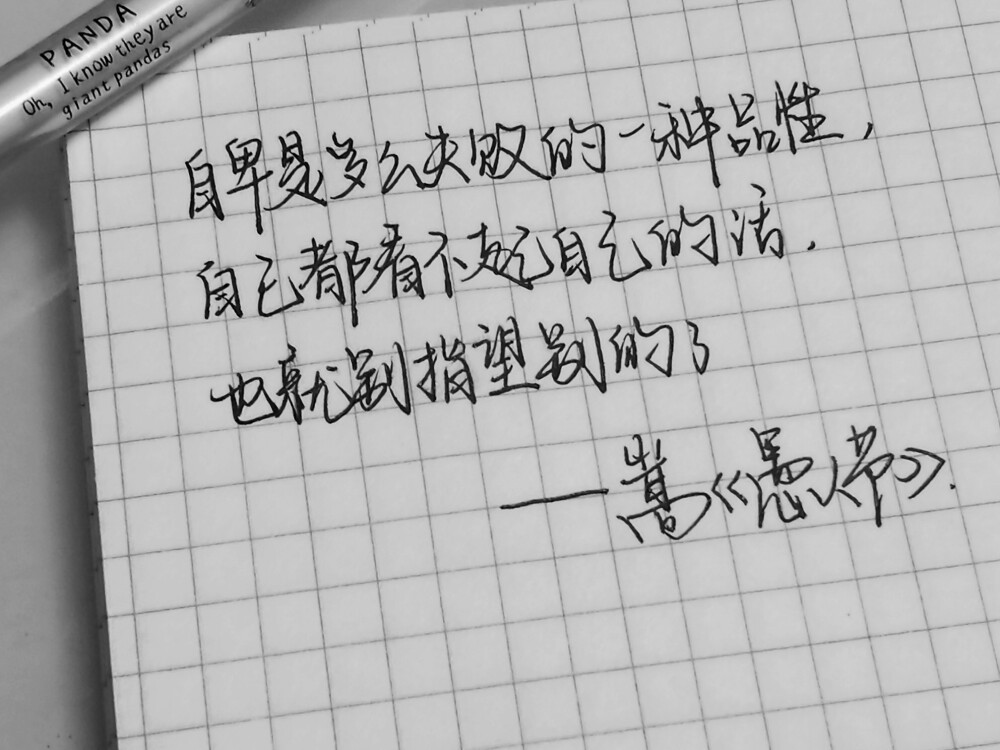 PANDA
Oh, I know they are
giant pandas
自卑是多么失败的一种品性,
自己都看不起自己的话.
也就别指望别的了
——嵩《愚人节》.